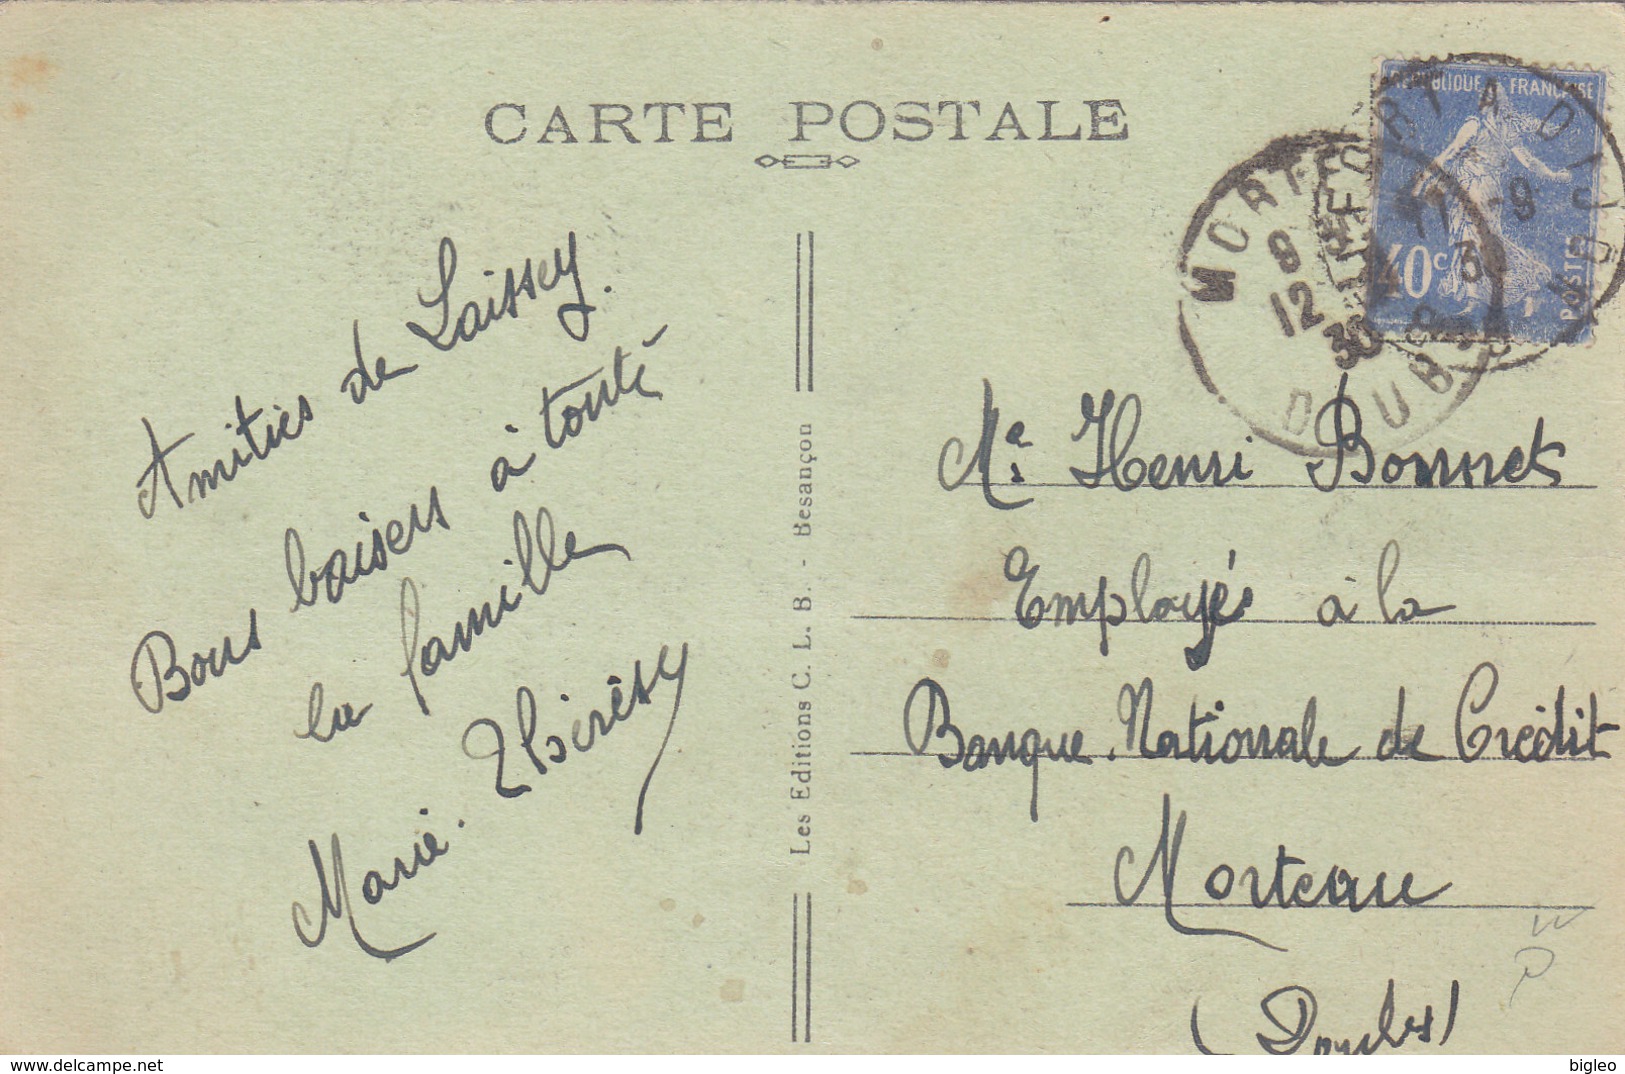 CARTE POSTALE
Amitiés de Laissey.
Bons baisers à toute
la famille
Marie-Thérèse
Les Editions C. L. B. - Besançon
REPUBLIQUE FRANÇAISE
40c
POSTES
9
12
30
DOUBS
11 -9
Mr Henri Bonnet
Employé à la
Banque Nationale de Crédit
Morteau
(Doubs)
https://www.delcampe.net
bigleo